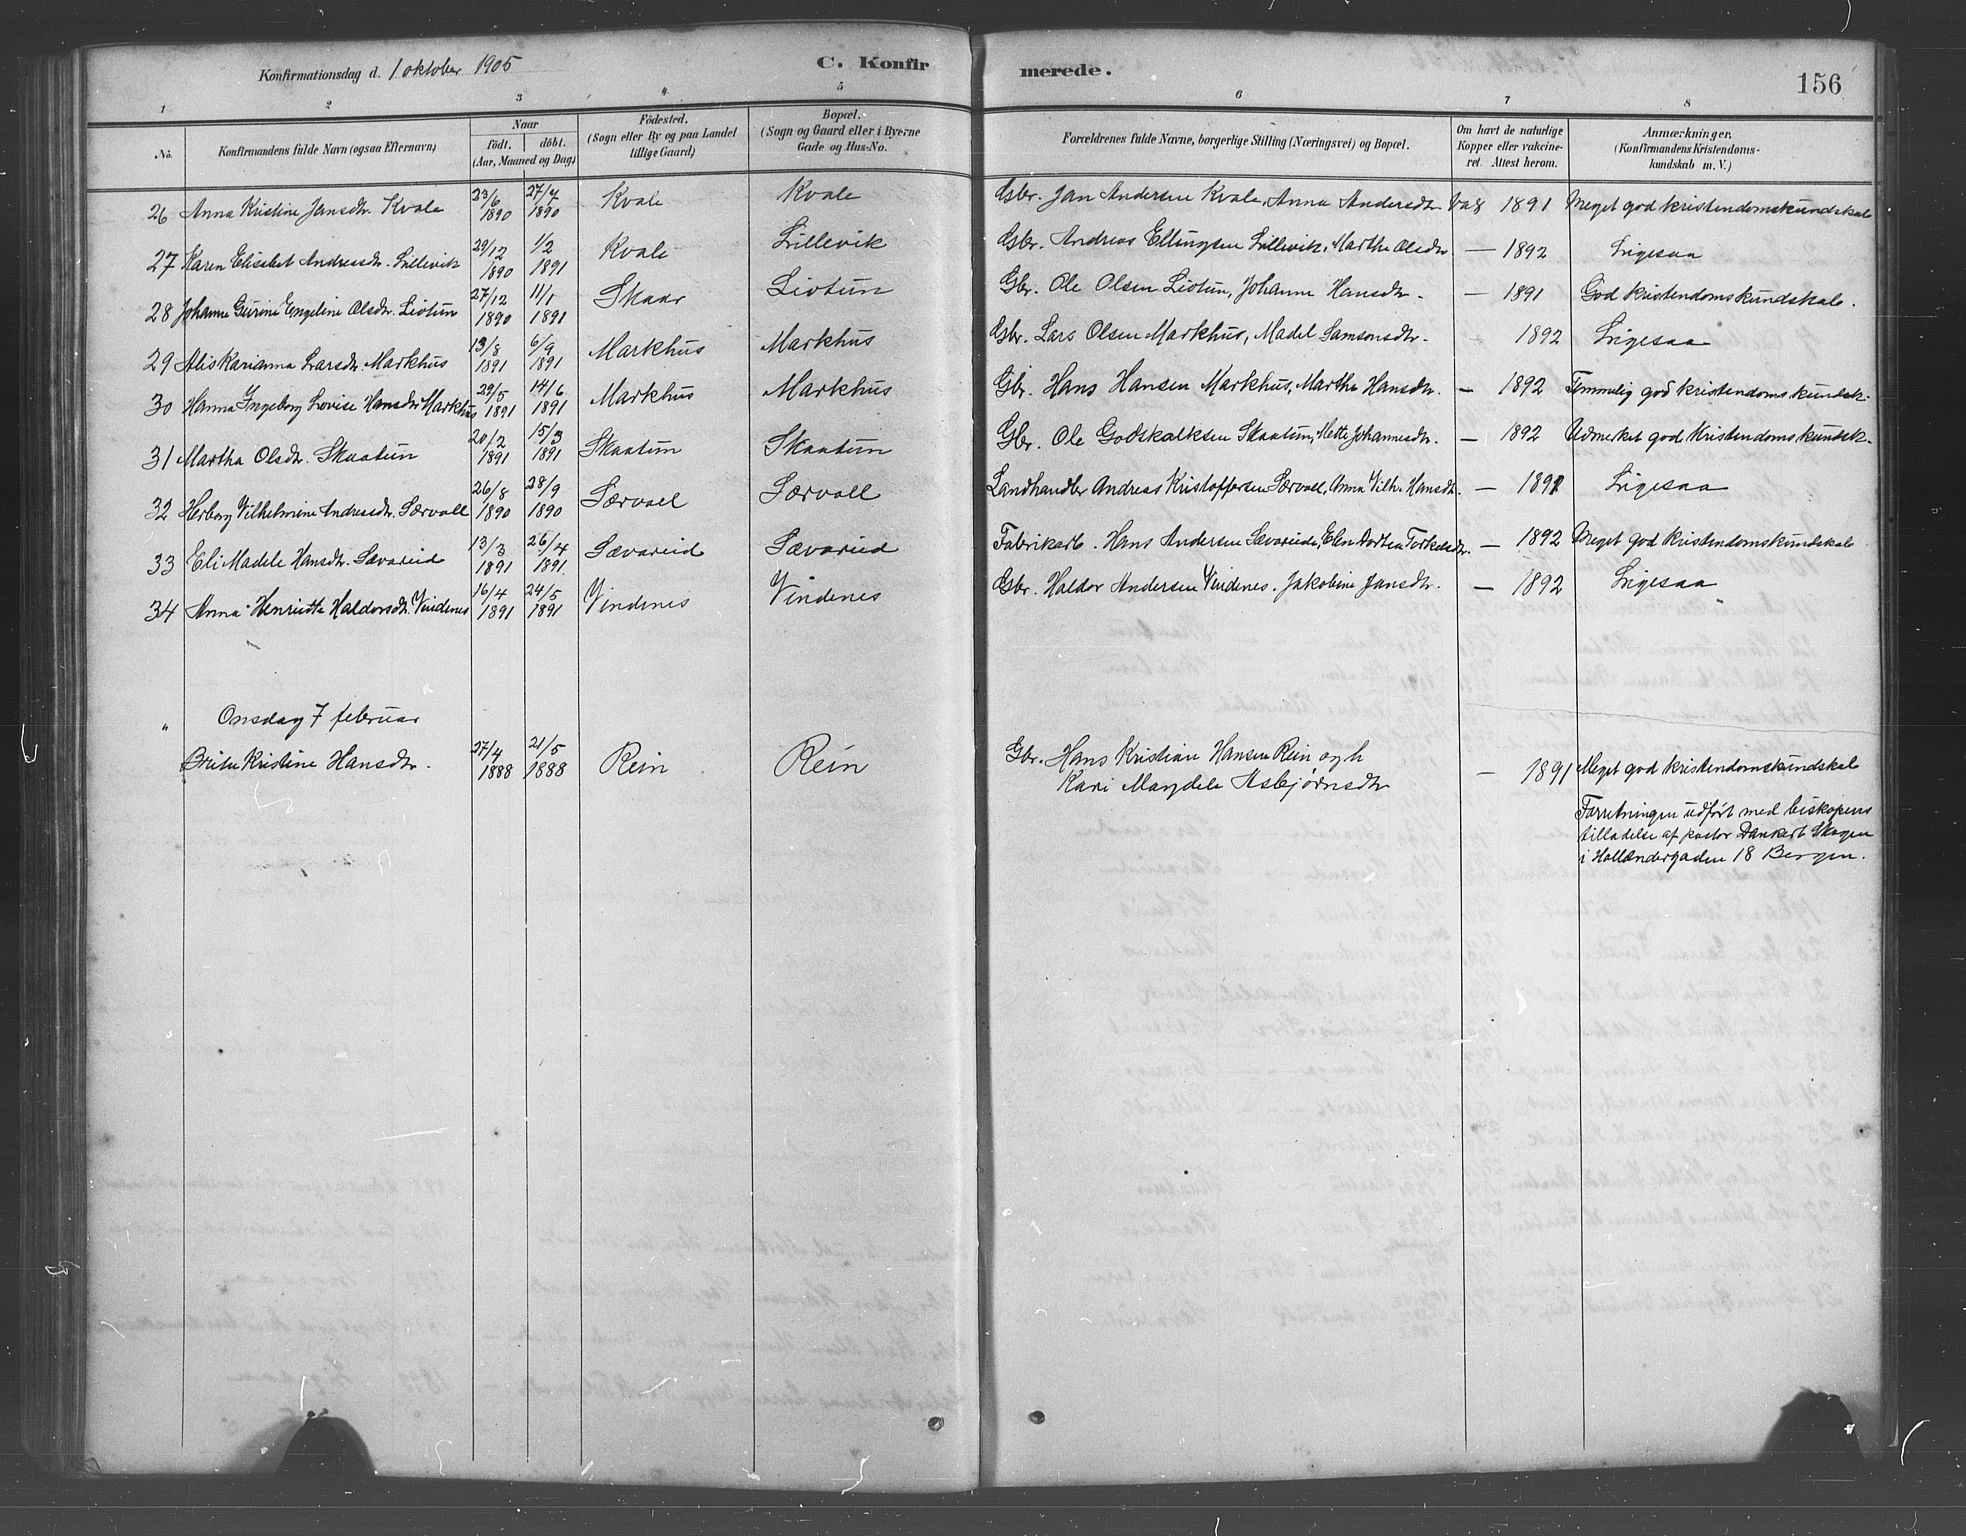 Konfirmationsdag d. 1 oktober 1905 C. Konfirmerede. 156
1 2 3 4 5 6 7 8
No. Konfirmandens fulde Navn (ogsaa Efternavn) Naar födt. döbt. (Aar, Maaned og Dag) Födested. (Sogn eller By og paa Landet tillige Gaard) Bopæl. (Sogn og Gaard eller i Byerne Gade og Hus-No. Forældrenes fulde Navne, borgerlige Stilling (Næringsvei) og Bopæl. Om havt de naturlige Kopper eller vakcineret. Attest herom. Anmærkninger. (Konfirmandens Kristendomskundskab m. V.)
26 Anna Kristine Jansdtr. Kvale 23/6 1890 27/7 1890 Kvale Kvale Gbr. Jan Andersen Kvale, Anna Andersdtr Vac 1891 Meget god kristendomskundskab
27 Karen Elisabet Andreasdtr. Lillevik 29/12 1890 1/2 1891 Kvale Lillevik Gbr. Andreas Ellingsen Lillevik, Martha Olsdtr — 1892 Ligesaa
28 Johanne Gurine Engeline Olsdtr. Liotun 27/12 1890 11/1 1891 Skaar Liotun Gbr. Ole Olsen Liotun, Johanne Hansdtr. — 1891 God kristendomskundskab.
29 Alis Karianna Larsdtr. Markhus 13/8 1891 6/9 1891 Markhus Markhus Gbr. Lars Olsen Markhus, Madel Samsonsdtr. 1892 Ligesaa
30 Hanna Ingeborg Lovise Hansdtr Markhus 29/5 1891 14/6 1891 Markhus Markhus Gbr. Hans Hansen Markhus, Martha Hansdtr. — 1892 Temmelig god kristendomskundsk.
31 Martha Olsdtr. Skaatun 20/2 1891 15/3 1891 Skaatun Skaatun Gbr. Ole Godskalksen Skaatun, Mette Johannesdtr. — 1892 Udmerket god kristendomskundsk.
32 Herborg Vilhelmine Andreasdtr. Særvoll 26/8 1890 28/9 1890 Særvoll Særvoll Landhandler Andreas Kristoffersen Særvoll, Anna Vilh. Hansdtr. — 1891 Ligesaa
33 Eli Madele Hansdtr. Sævareid 13/3 1891 26/4 1891 Sævareid Sævareid Fabrikarb. Hans Andersen Sævareide, Elen Dortea Torkelsdtr. — 1892 Meget god kristendomskundskab
34 Anna Henriette Haldorsdtr. Vindenes 16/4 1891 24/5 1891 Vindenes Vindenes Gbr. Haldor Andersen Vindenes. Jakobine Jansdtr. — 1892 Ligesaa
" Onsdag 7 februar
Brita Kristine Hansdtr. 27/4 1888 21/5 1888 Rein Rein Gbr. Hans Kristian Hansen Rein og h — 1891 Meget god kristendomskundskab
Kari Magdele Asbjørnsdtr
Forretningen udført med biskopens
tilladelse af pastor Dankert Skagen
i Hollændergaden 18 Bergen.